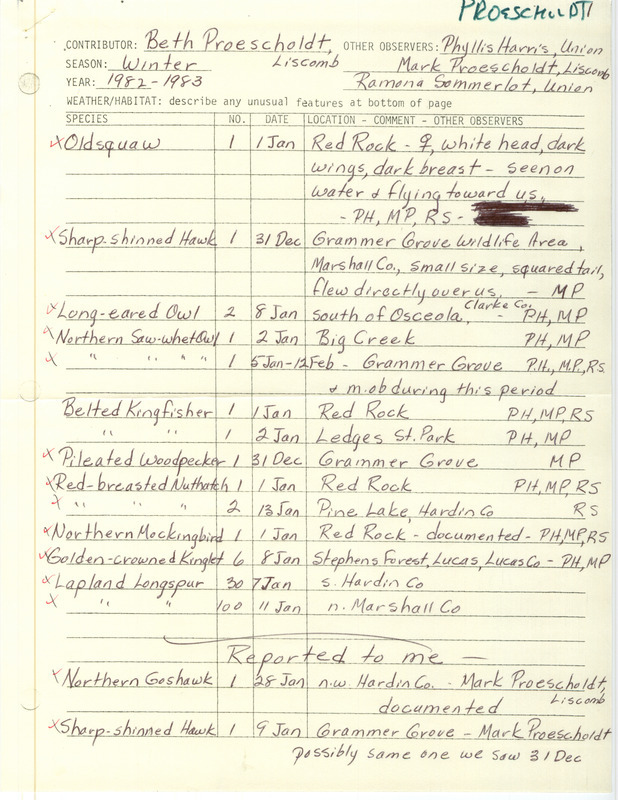 PROESCHOLDT
CONTRIBUTOR: Beth Proescholdt, Liscomb OTHER OBSERVERS: Phyllis Harris, Union
SEASON: Winter Mark Proescholdt, Liscomb
YEAR: 1982-1983 Ramona Sommerlot, Union
WEATHER/HABITAT: describe any unusual features at bottom of page
SPECIES NO. DATE LOCATION - COMMENT - OTHER OBSERVERS
x Oldsquaw 1 1 Jan Red Rock - ♀, white head, dark
wings, dark breast - seen on
water & flying toward us,
- PH, MP, RS -
x Sharp-shinned Hawk 1 31 Dec Grammer Grove Wildlife Area,
Marshall Co., small size, squared tail,
flew directly over us, - MP
x Long-eared Owl 2 8 Jan south of Osceola, Clarke Co. - PH, MP
x Northern Saw-whet Owl 1 2 Jan Big Creek PH, MP
x " " " " 1 5 Jan-12 Feb - Grammer Grove P.H., M.P., RS
& m.ob during this period
Belted Kingfisher 1 1 Jan Red Rock PH, MP, RS
" " 1 2 Jan Ledges St. Park PH, MP
x Pileated Woodpecker 1 31 Dec Grammer Grove MP
x Red-breasted Nuthatch 1 1 Jan Red Rock PH, MP, RS
x " " 2 13 Jan Pine Lake, Hardin Co RS
x Northern Mockingbird 1 1 Jan Red Rock - documented - PH, MP, RS
x Golden-crowned Kinglet 6 8 Jan Stephens Forest, Lucas, Lucas Co - PH, MP
x Lapland Longspur 30 7 Jan s. Hardin Co
x " " 100 11 Jan n. Marshall Co
Reported to me -
x Northern Goshawk 1 28 Jan n.w. Hardin Co. - Mark Proescholdt, Liscomb
documented
x Sharp-shinned Hawk 1 9 Jan Grammer Grove - Mark Proescholdt
possibly same one we saw 31 Dec